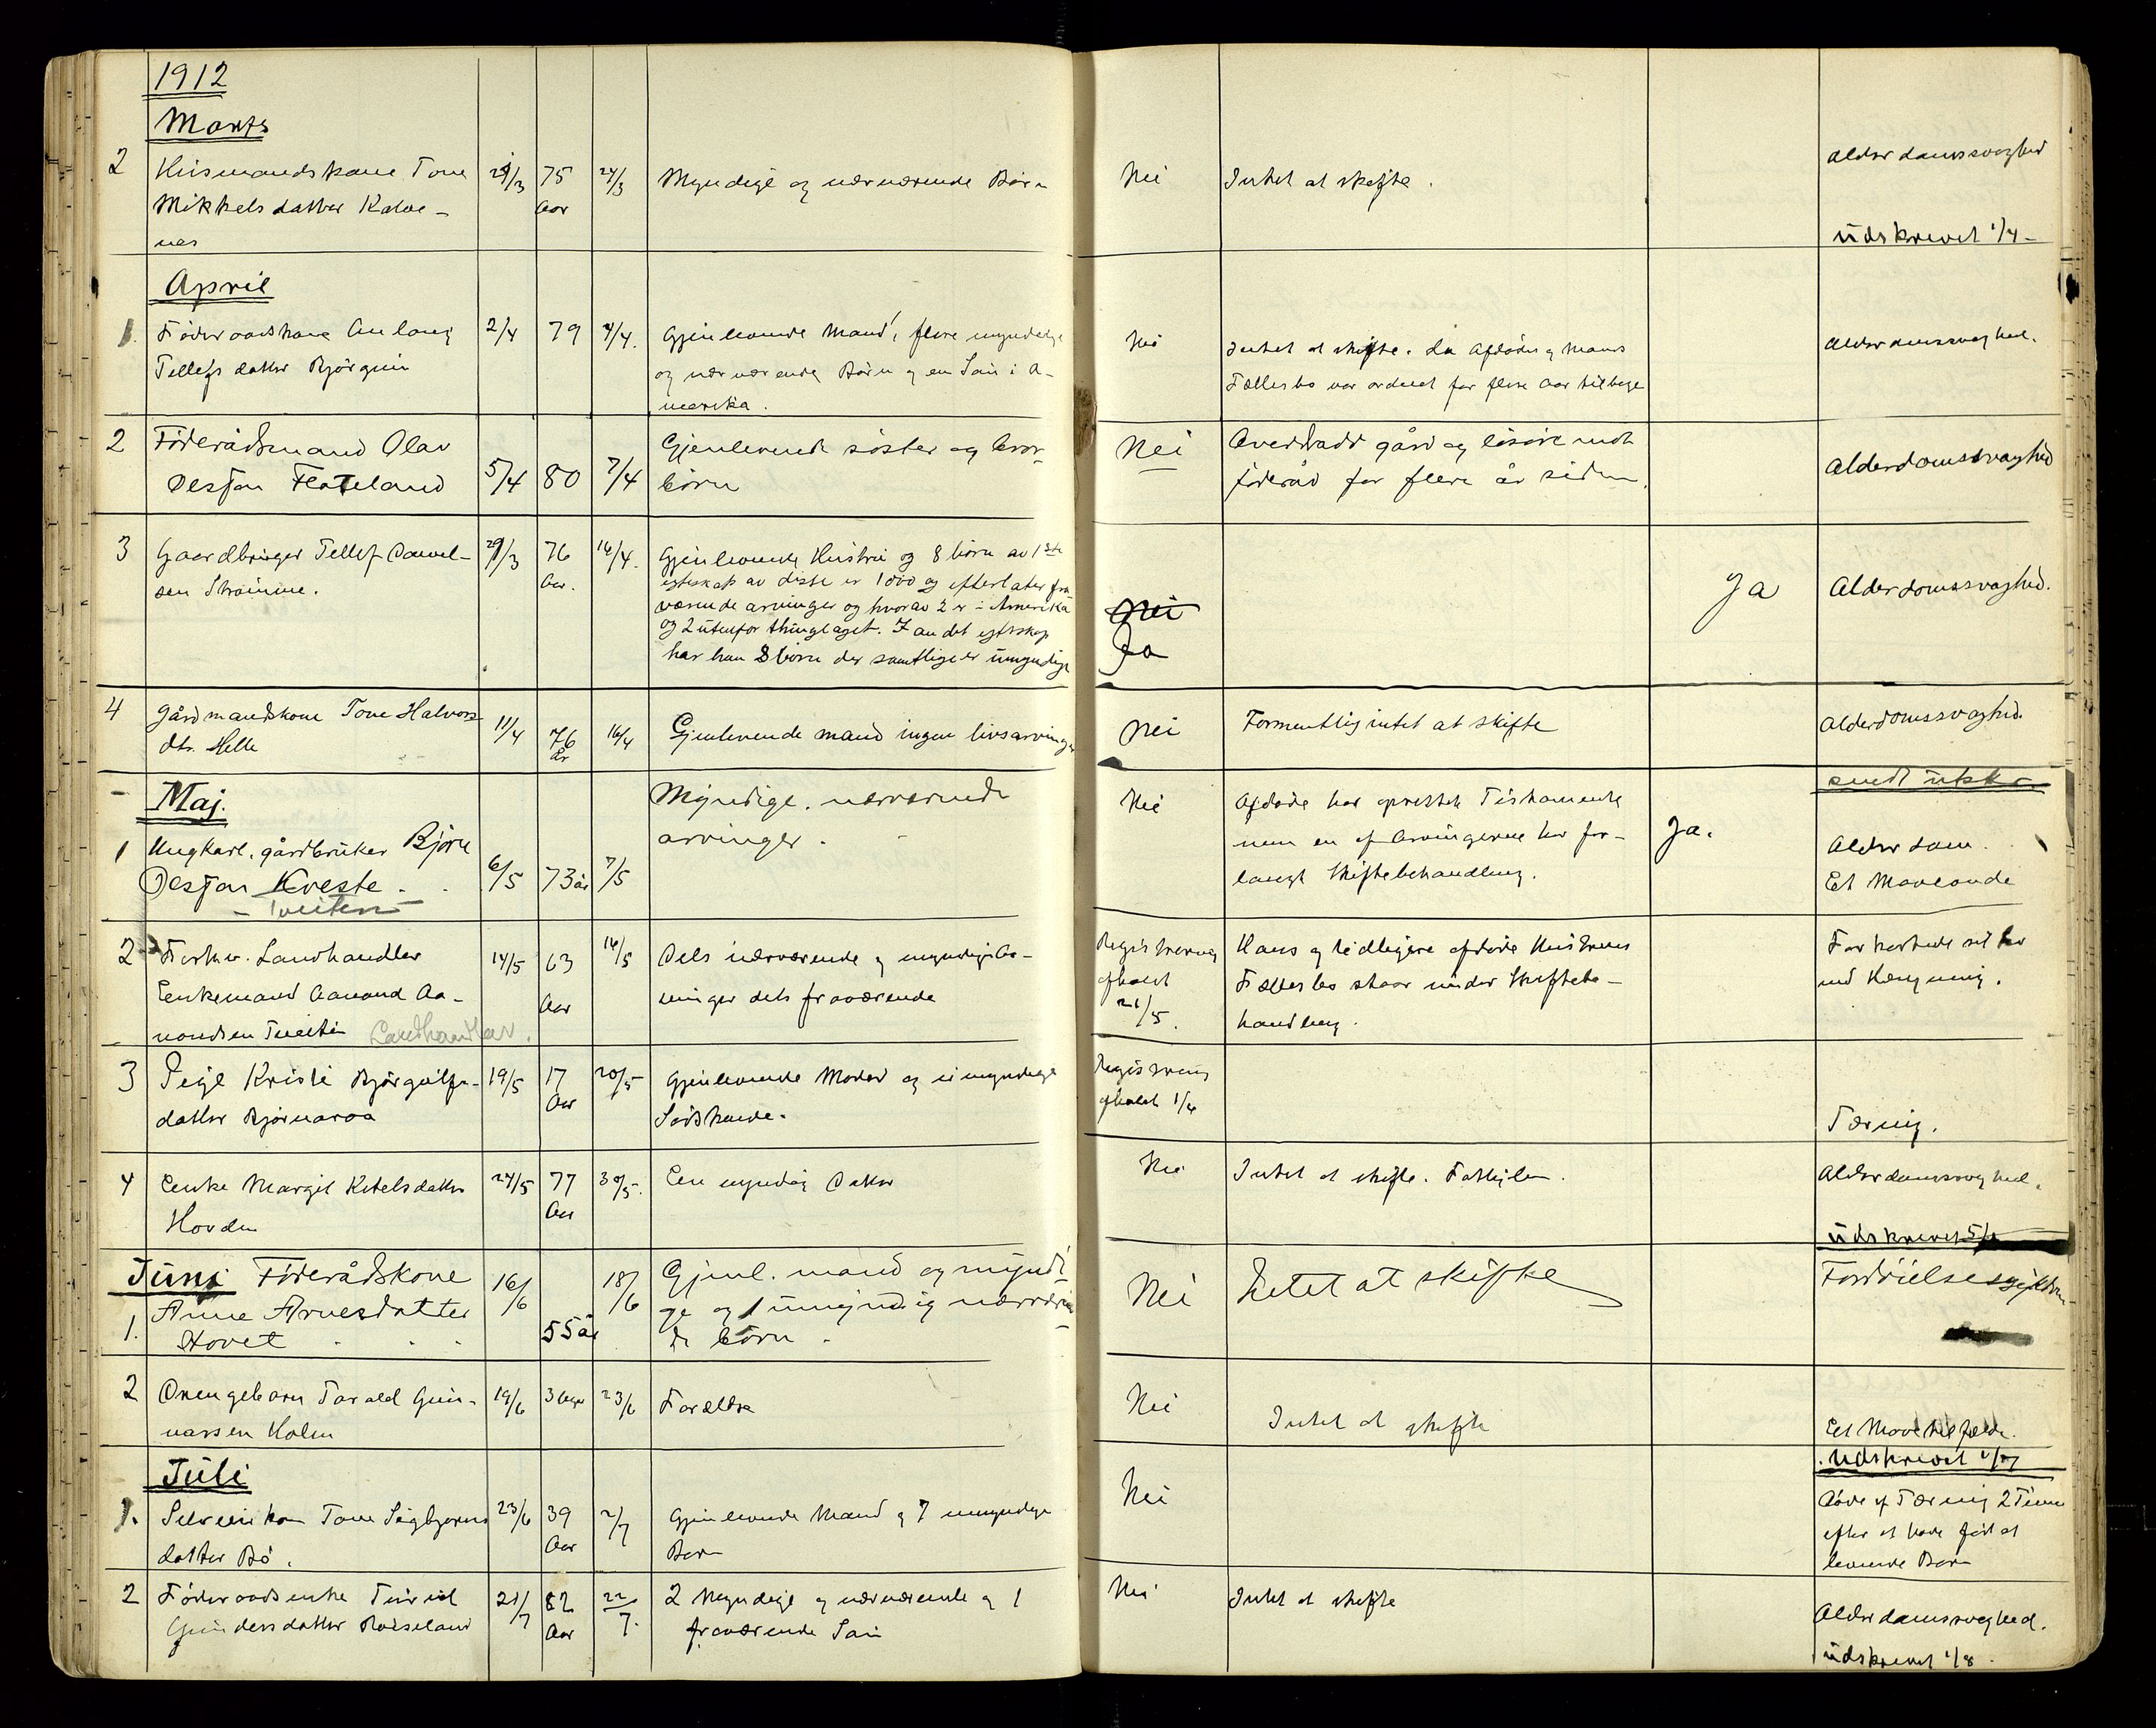 1912
Marts
2
Husmandskone Tone
Mikkelsdatter Kalve-
nes
29/3
75
Aar
24/3
Myndige og nærværende Børn
Nei
Intet at skifte.
Alderdomssvaghed
Udskrevet 1/4-
April
1.
Föderaadskone Anlaug
Tellefsdatter Bjørgum
2/4
79
4/4.
Gjenlevende Mand, flere myndige
og nærværende Börn og en Søn i A-
merika.
Nei
Intet at skifte. Da Afdødes og Mands
Fællesbo var ordnet for flere Aar tilbage
Alderdomssvaghed.
2
Föderådsmand Olav
Olesson Flateland
5/4
80
7/4
Gjenlevende söster og bror-
börn
Nei
Overdradd gård og lösöre mot
föderåd for flere år siden.
Alderdomssvaghed
3
Gaardbruger Tellef Danvel-
sen Straume.
29/3
76
Aar.
16/4.
Gjenlevende Hustru og 8 börn av 1ste
egteskap av disse er 1 död og efterlater fra
værende arvinger og hvorav 2 er i Amerika
og 2 utenfor thinglaget. I andet egteskap
har han 8 börn der samtlige er umyndige
Nei
Ja
Ja
Alderdomssvaghed.
4
Gårdmandskone Tone Halvors
dtr. Helle
11/4
76
År
16/4
Gjenlevende mand ingen livsarvinger
Nei
Formentlig intet at skifte
Alderdomssvaghed.
sendt utskr.
Maj.
1
Ungkarl, gårdbruker Björn
Olesson Kveste
- Tveiten -
6/5
73 år
7/5
Myndige, nærværende
arvinger.
Nei
Afdøde har oprettet Testamente
men en af Arvingerne har for-
langt Skiftebehandling.
Ja.
Alderdom.
Et Maveonde
2
Forhv. Landhandler
Enkemand Aanond Aa-
nondsen Tveiten Landhandlar.
14/5
63
Aar
16/5
Dels nærværende og myndige Ar-
vinger dels fraværende
Registrering
afholdt
21/5.
Hans og tidligere afdøde Hustrues
Fællesbo staar under Skiftebe-
handling.
Forkortede sit liv
ved Hængning.
3
Pige Kristi Bjørgulfs-
datter Bjørnaraa
19/5
17
Aar
20/5
Gjenlevende Moder og umyndige
Södskende.
Registrering
afholdt 1/6
Tæring.
4
Enke Margit Ketelsdatter
Hovden
24/5
77
Aar
30/5.
En myndig Datter
Nei
Intet at skifte. Fattiglem.
Alderdomssvaghed.
Udskrevet 5/6
Juni
1.
Föderådskone
Anne Arnesdatter
Hovet
16/6
55 år
18/6
Gjenl. mand og myndi-
ge og 1 umyndig nærværen-
de börn.
Nei
Intet at skifte
2
Drengebarn Tarald Gun-
narssen Holen
19/6
3 Uger
23/6
Forældre
Nei
Intet at skifte
Et Mavetilfælde.
Udskrevet 1/7
Juli
1.
Selveierkone Tone Sigbjørns
datter Bö.
23/6
39
Aar
2/7
Gjenlevende Mand og 7 umyndige
Børn
Nei
Døde af Tæring 2 Timer
efter at have født et
levende Barn
2
Föderaadsenke Turid
Gundersdatter Røiseland
21/7
82
Aar
22/7.
2 Myndige og nærværende og 1
fraværende Søn
Nei
Intet at skifte
Alderdomssvaghed.
Udskrevet 1/8.